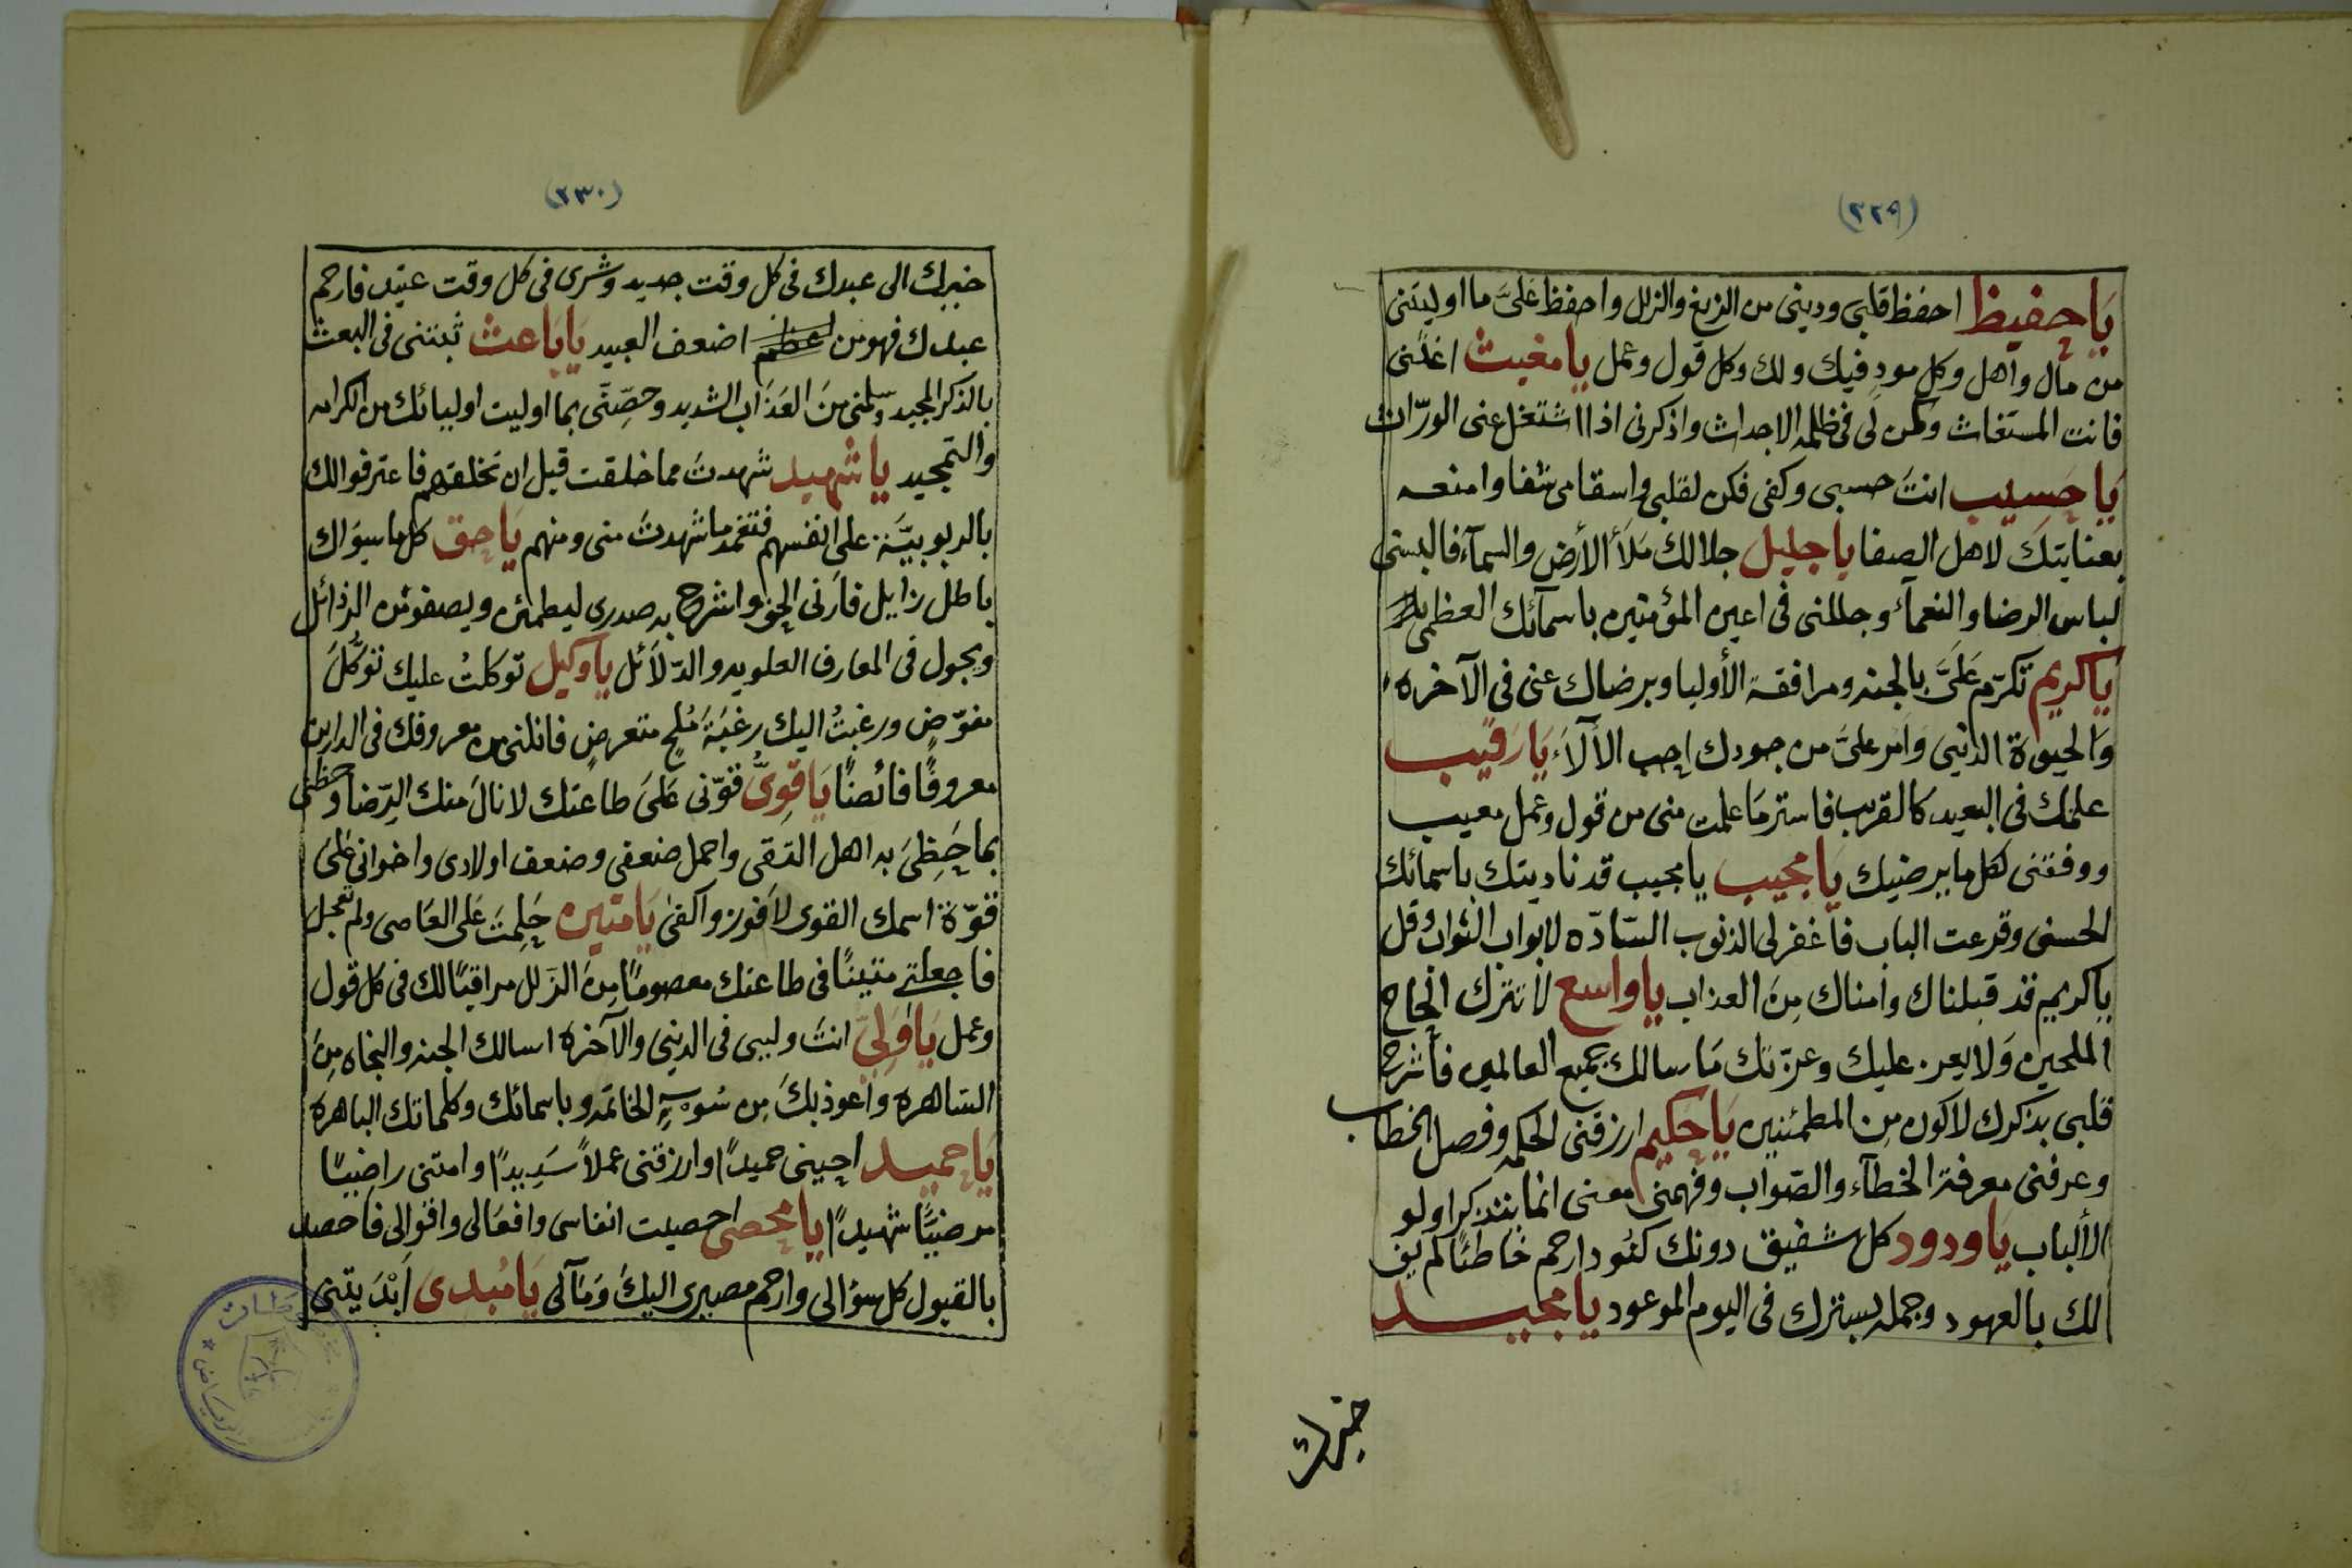 (٢٢٩)
يَا حفيظ احفظ قلبي وديني من الزيغ والزلل واحفظ عَلىَّ ما اوليتنى
من مال واهل وكل مودٍ فيك ولك وكل قول وعمل يا مغيث اغثنى
فانت المستغاث وكن لى فى ظلمه الاجداث واذكرنى اذا اشتغل عنى الورّاث
يَا حَسيب انتَ حسبى وكفى فكن لقلبى واسقامى شفا وامنعه
بعنايتكَ لاهل الصفا يا جليل جلالك مَلأ الأرض والسمآء فالبسنى
لباس الرضا والنعمآء وجللنى فى اعين المؤمنين باسمآئك العظمى
يا كريم تكرّم عَلىَّ بالجنه ومرافقة الأوليا وبرضاك عنى فى الآخره
وَالحيوة الدنيى وَامر علىَّ من جودك احب الألآء يَا رَقيب
علمك فى البعيد كالقريب فاستر مَا علمت منى من قول وعمل معيب
ووفقنى لكل ما يرضيك يَا مجيب يا مجيب قد ناديتك باسمائك
الحسنى وقرعت الباب فاغفر لى الذنوب السّادّه لابواب الثواب وقل
يا كريم قد قبلناك وامناك مِنَ العذاب يا واسع لا تترك الحاح
الملحين وَلا يعز عليك وعزتك مَا سالك جميع العالمين فاشرح
قلبى بذكرك لاكون مِن المطمئنين يَا حَكيم ارزقنى الحكمه وفصل الخطاب
وعرفنى معرفة الخطآء والصّواب وفهمنى معنى انما يتذكر اولو
الألباب يَا ودود كل شفيق دونك كنُود ارحم خاطئًا لم يف
لك بالعهود وجمله بسترك فى اليوم الموعود يا مجيد
خيرك
(٢٣٠)
خيرك الى عبدك فى كل وقت جديد وشرى فى كل وقت عتيد فارحم
عبدك فهو من اضعف العبيد يَا بَاعث ثبتنى فى البعث
بالذكر المجيد وسلمنى مِنَ العَذَاب الشديد وحصِّنّى بما اوليت اوليائك من الكرامه
والتمجيد يا شهيد شهدتَ مما خلقت قبل ان تخلقهم فاعترفوا لك
بالربوبيَّة على انفسهم فتغمد ما شهدتَ منى ومنهم يَا حق كل ما سِوَاك
باطل زايل فارنى الحق واشرح به صدرى ليطمئن ويصفو من الرذائل
ويجول فى المعارف العلويه والدّلآئل يا وكيل توكلتُ عليك توكُّلَ
مفوّضٍ ورغبتُ اليك رغبَةَ مُلحٍ متعرضٍ فانلنى من معروفك فى الدارين
معروفًا فائضًا يَا قوِىُّ قوّنى عَلىَ طاعتك لانالَ منك الرّضا وحظنى
بما حَظِىَ به اهل التقى واحمل ضعفى وضعف اولادى واخوانى عَلىَ
قوّة اسمك القوى لأفوز واكفىٰ يَا متين حَلِمتَ عَلى العَاصى ولم تعجل
فاجعلنى متينًا فى طاعتك معصومًا مِنَ الزَلل مراقبًا لك فى كل قول
وعمل يَا وَلىّ انتَ وليى فى الدنيى والآخره اسالك الجنه والنجاه مِنَ
السّاهره واعوذ بكَ مِن سُوءِ الخاتمه وباسمائك وكلماتك الباهره
يَا حميد احينى حميدًا وارزقنى عملاً سَديدًا وامتنى راضيًا
مرضيًّا شهيدًا يا محصى احصيت انفاسى وافعَالى واقوالى فاحصد
بالقبول كل سؤالى وارحم مصيرى اليكَ وَمَآلى يَا مُبدى اَبْدَيتنى